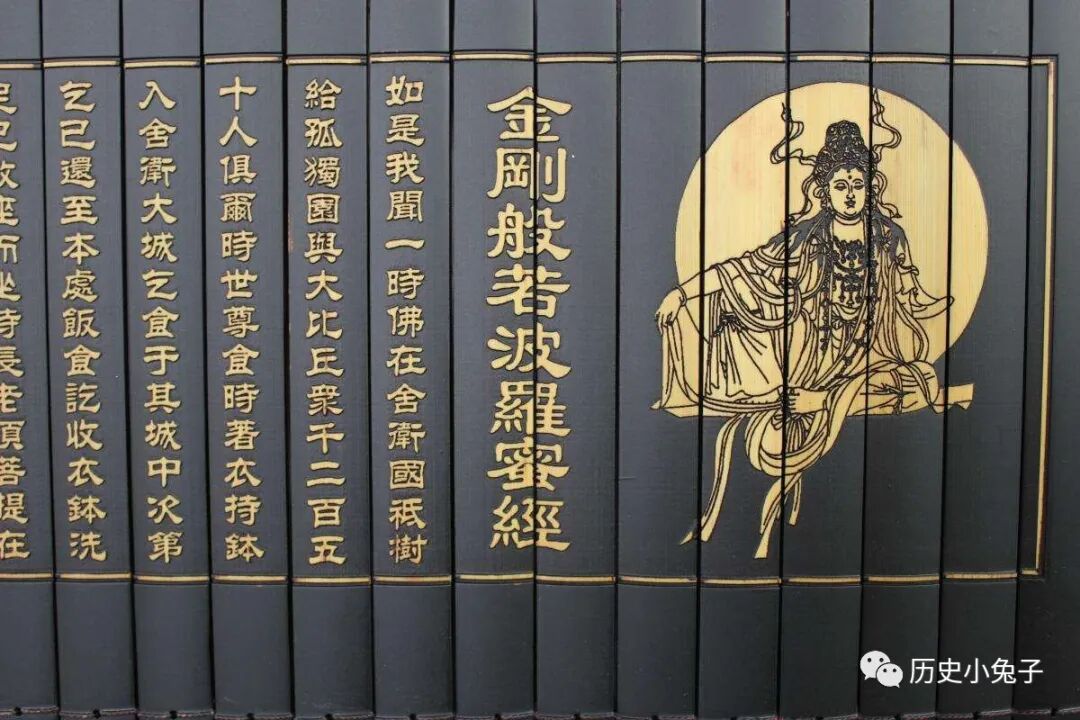 金剛般若波羅蜜經
如是我聞一時佛在舍衛國祇樹
給孤獨園與大比丘衆千二百五
十人俱爾時世尊食時著衣持鉢
入舍衛大城乞食于其城中次第
乞已還至本處飯食訖收衣鉢洗
足已敷座而坐時長老須菩提在
历史小兔子